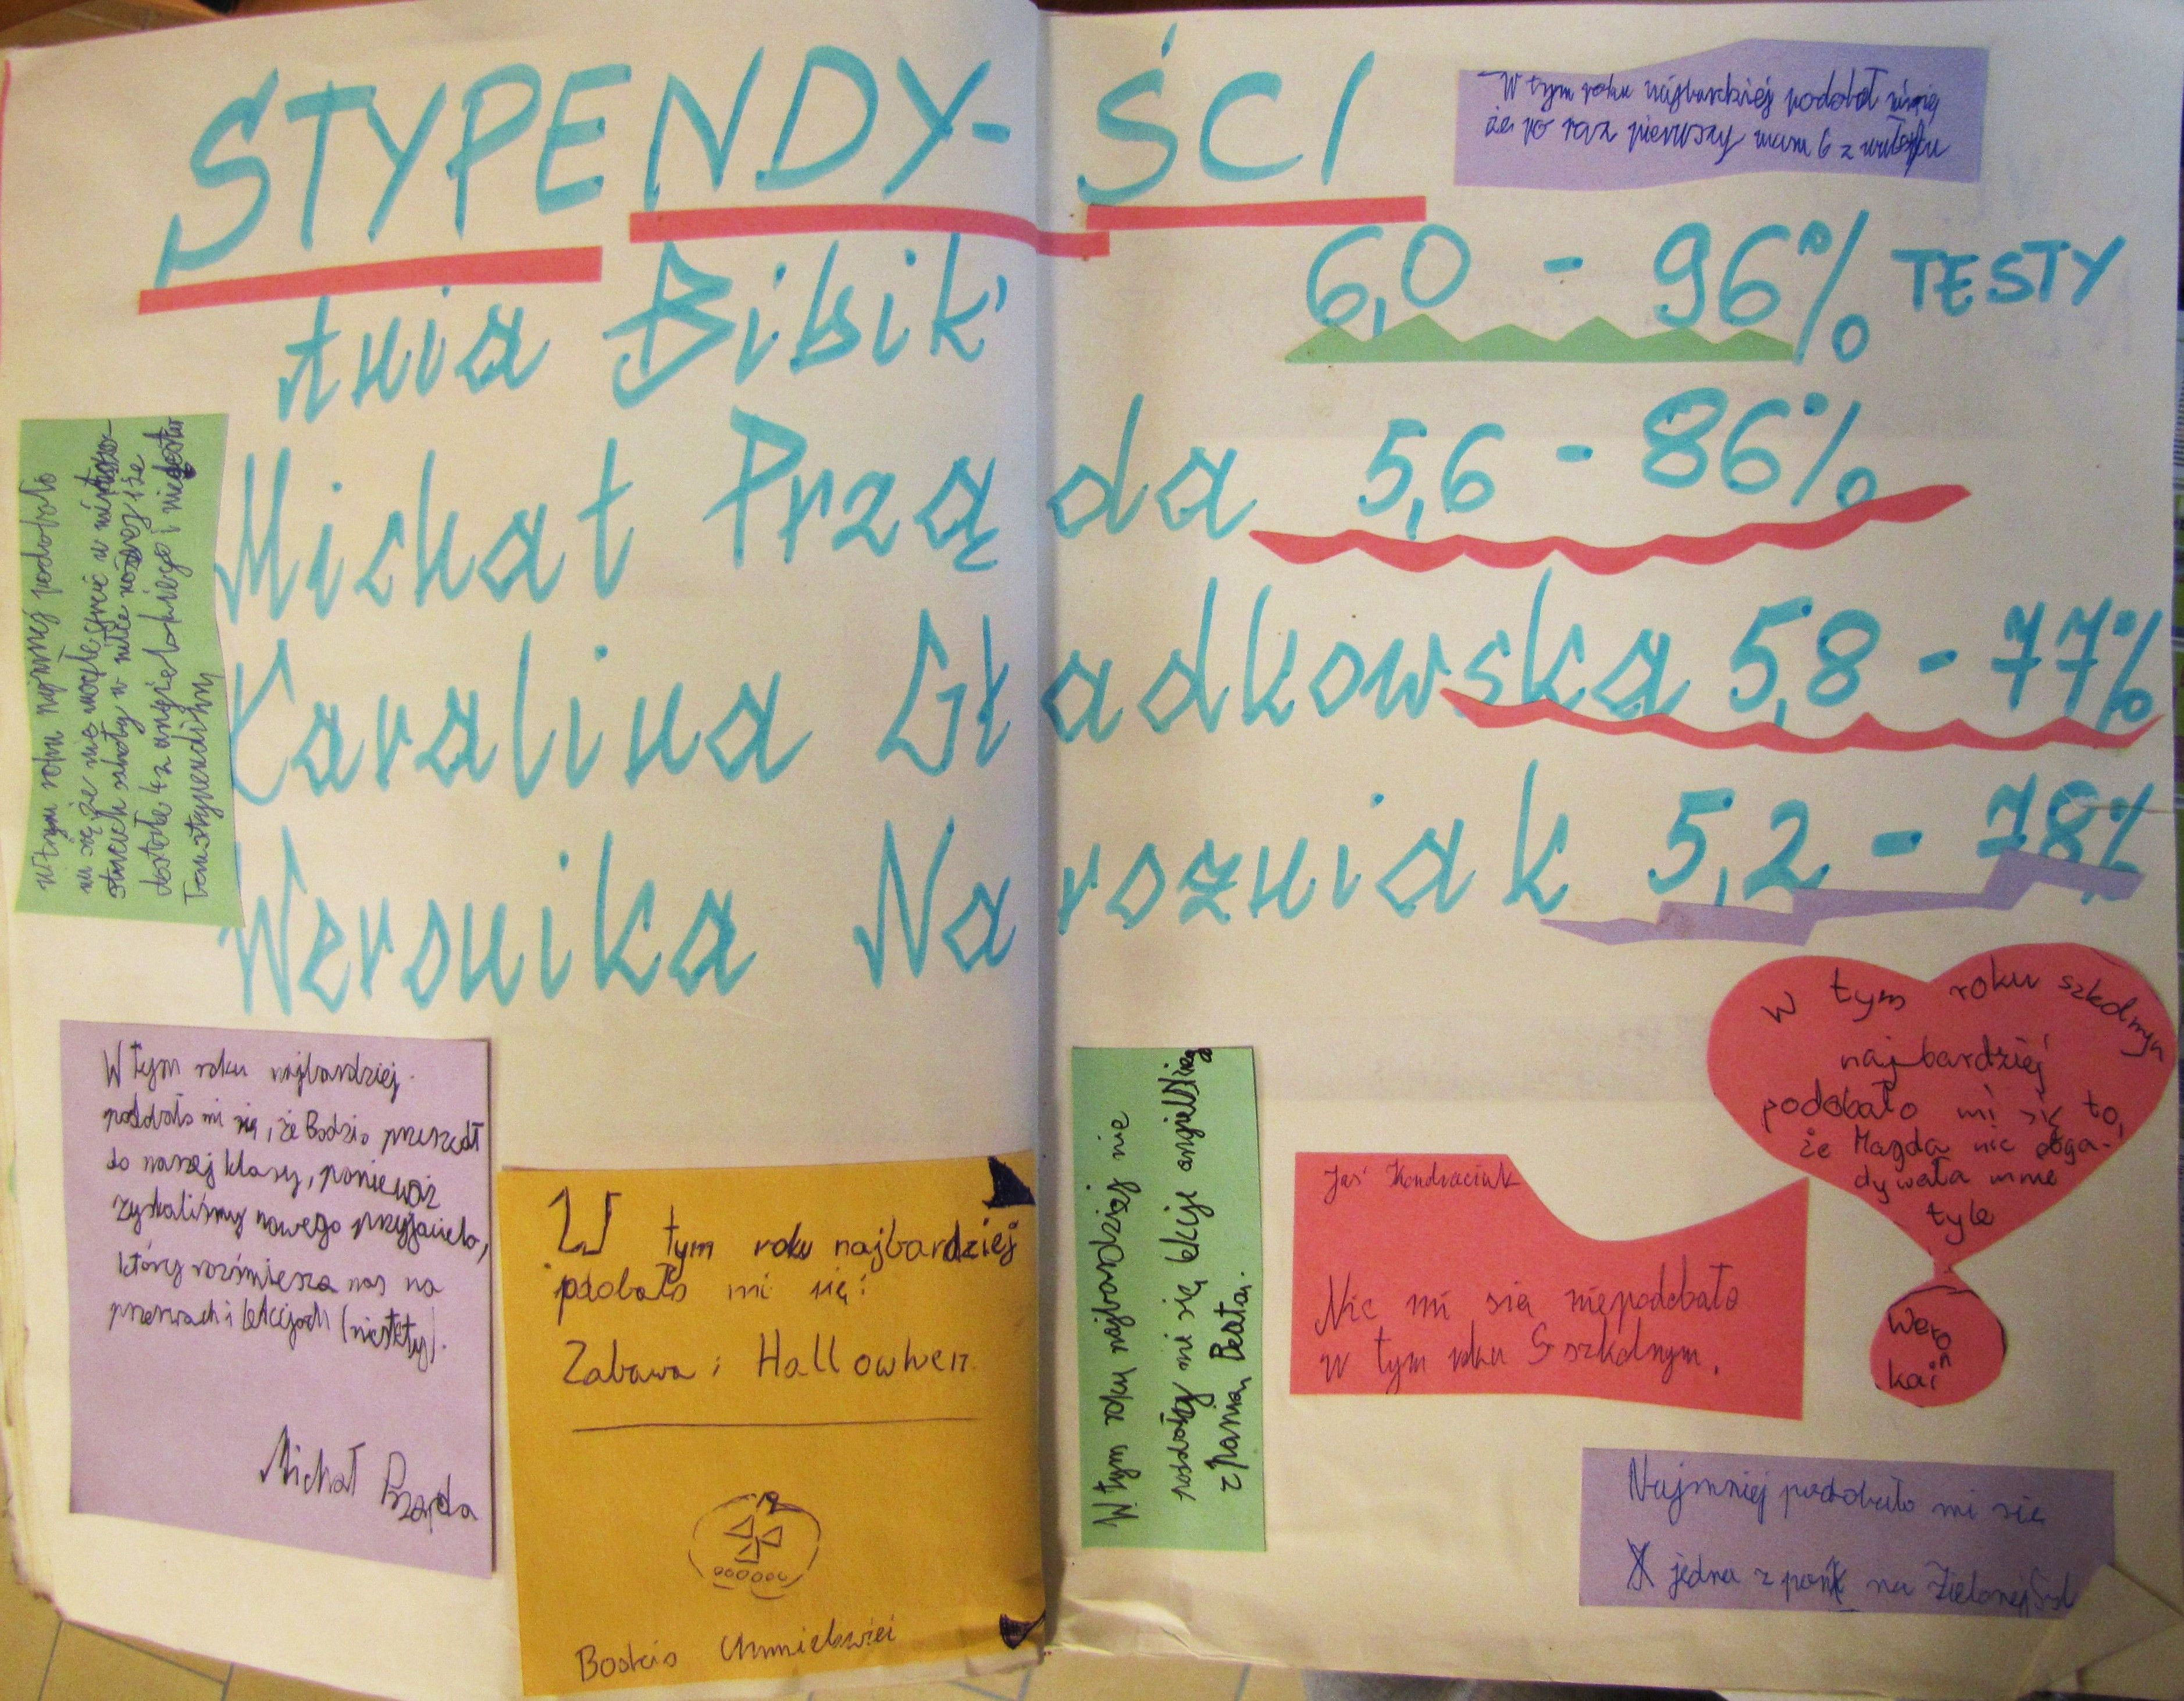 STYPENDY-ŚCI
Ania Bibik 6,0 - 96% TESTY
Michał Prząda 5,6 - 86%
Karolina Gładkowska 5,8 - 77%
Weronika Narozniak 5,2 - 78%
W tym roku najbardziej podobał
że po raz pierwszy mam 6 z
w tym roku podobało
mi się że nie
dostałe 4 z angielskiego i
W tym roku najbardziej
podobało mi się, że Bodzio przeszedł
do naszej klasy, ponieważ
zyskaliśmy nowego przyjaciela,
który rozśmiesza nas na
przerwach i lekcjach (niestety).
Michał Prząda
W tym roku najbardziej
podobało mi się:
Zabawa i Hallowwen.
W tym roku najbardziej nie
podobały mi się lekcje
z Panią Beatą.
Jaś Kondraciuk
Nic mi sia niepodobało
w tym roku S szkolnym.
W tym roku szkolnym
najbardziej
podobało mi się to,
że Magda nie obga-
dywała mnie
tyle
Wero
n
kai
Najmniej podobało mi sie
jedna z pań na Zielonej